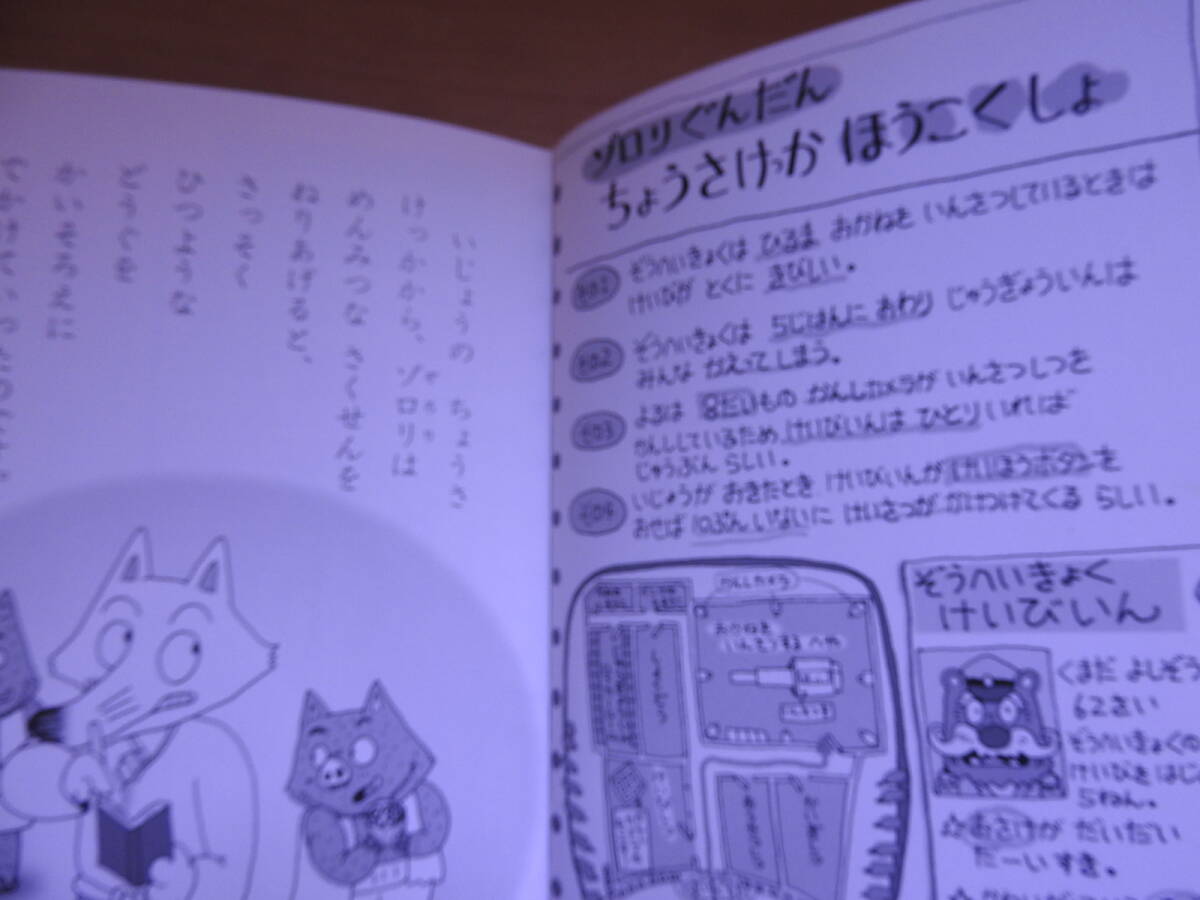 いじょうの ちょうさ
けっかから、ゾロリは
めんみつな さくせんを
ねりあげると、
さっそく
ひつような
どうぐを
かいそろえに
でかけていったのです。
ゾロリぐんだん
ちょうさけっか ほうこくしょ
その1 ぞうへいきょくは ひるま おかねを いんさつしているときは
けいびが とくに きびしい。
その2 ぞうへいきょくは 5じはんに おわり じゅうぎょういんは
みんな かえってしまう。
その3 よるは 8だいもの かんしカメラが いんさつしつを
かんししているため けいびいんは ひとり いれば
じゅうぶん らしい。
その4 いじょうが おきたとき けいびいんが けいほうボタンを
おせば 10ぷん いないに けいさつが かけつけてくる らしい。
かんしカメラ
おかねを
いんさつする へや
ぞうへいきょく
けいびいん
くまだ よしぞう
62さい
ぞうへいきょくの
けいびを はじ
5ねん。
☆おさけが だいだい
だーいすき。